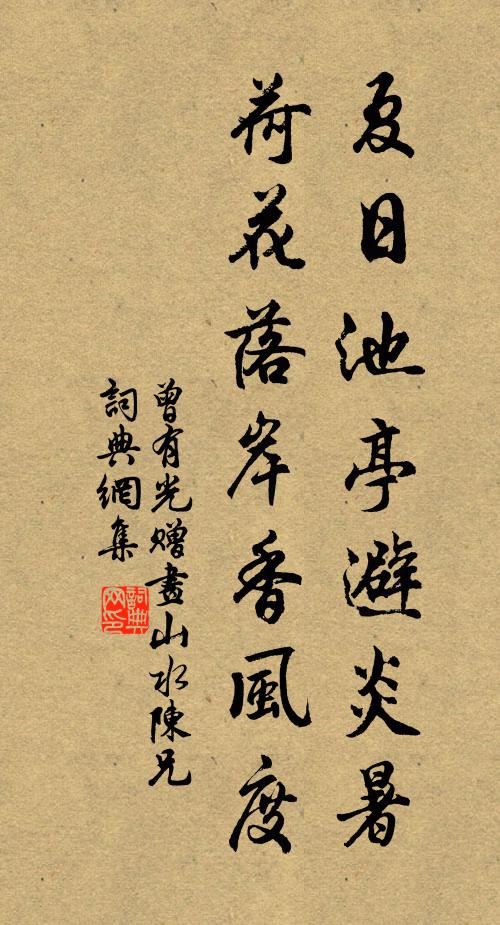 夏日池亭避炎暑
荷花落岸香風度
曾有光贈畫山水陳兄
詞典網集
詞典网印